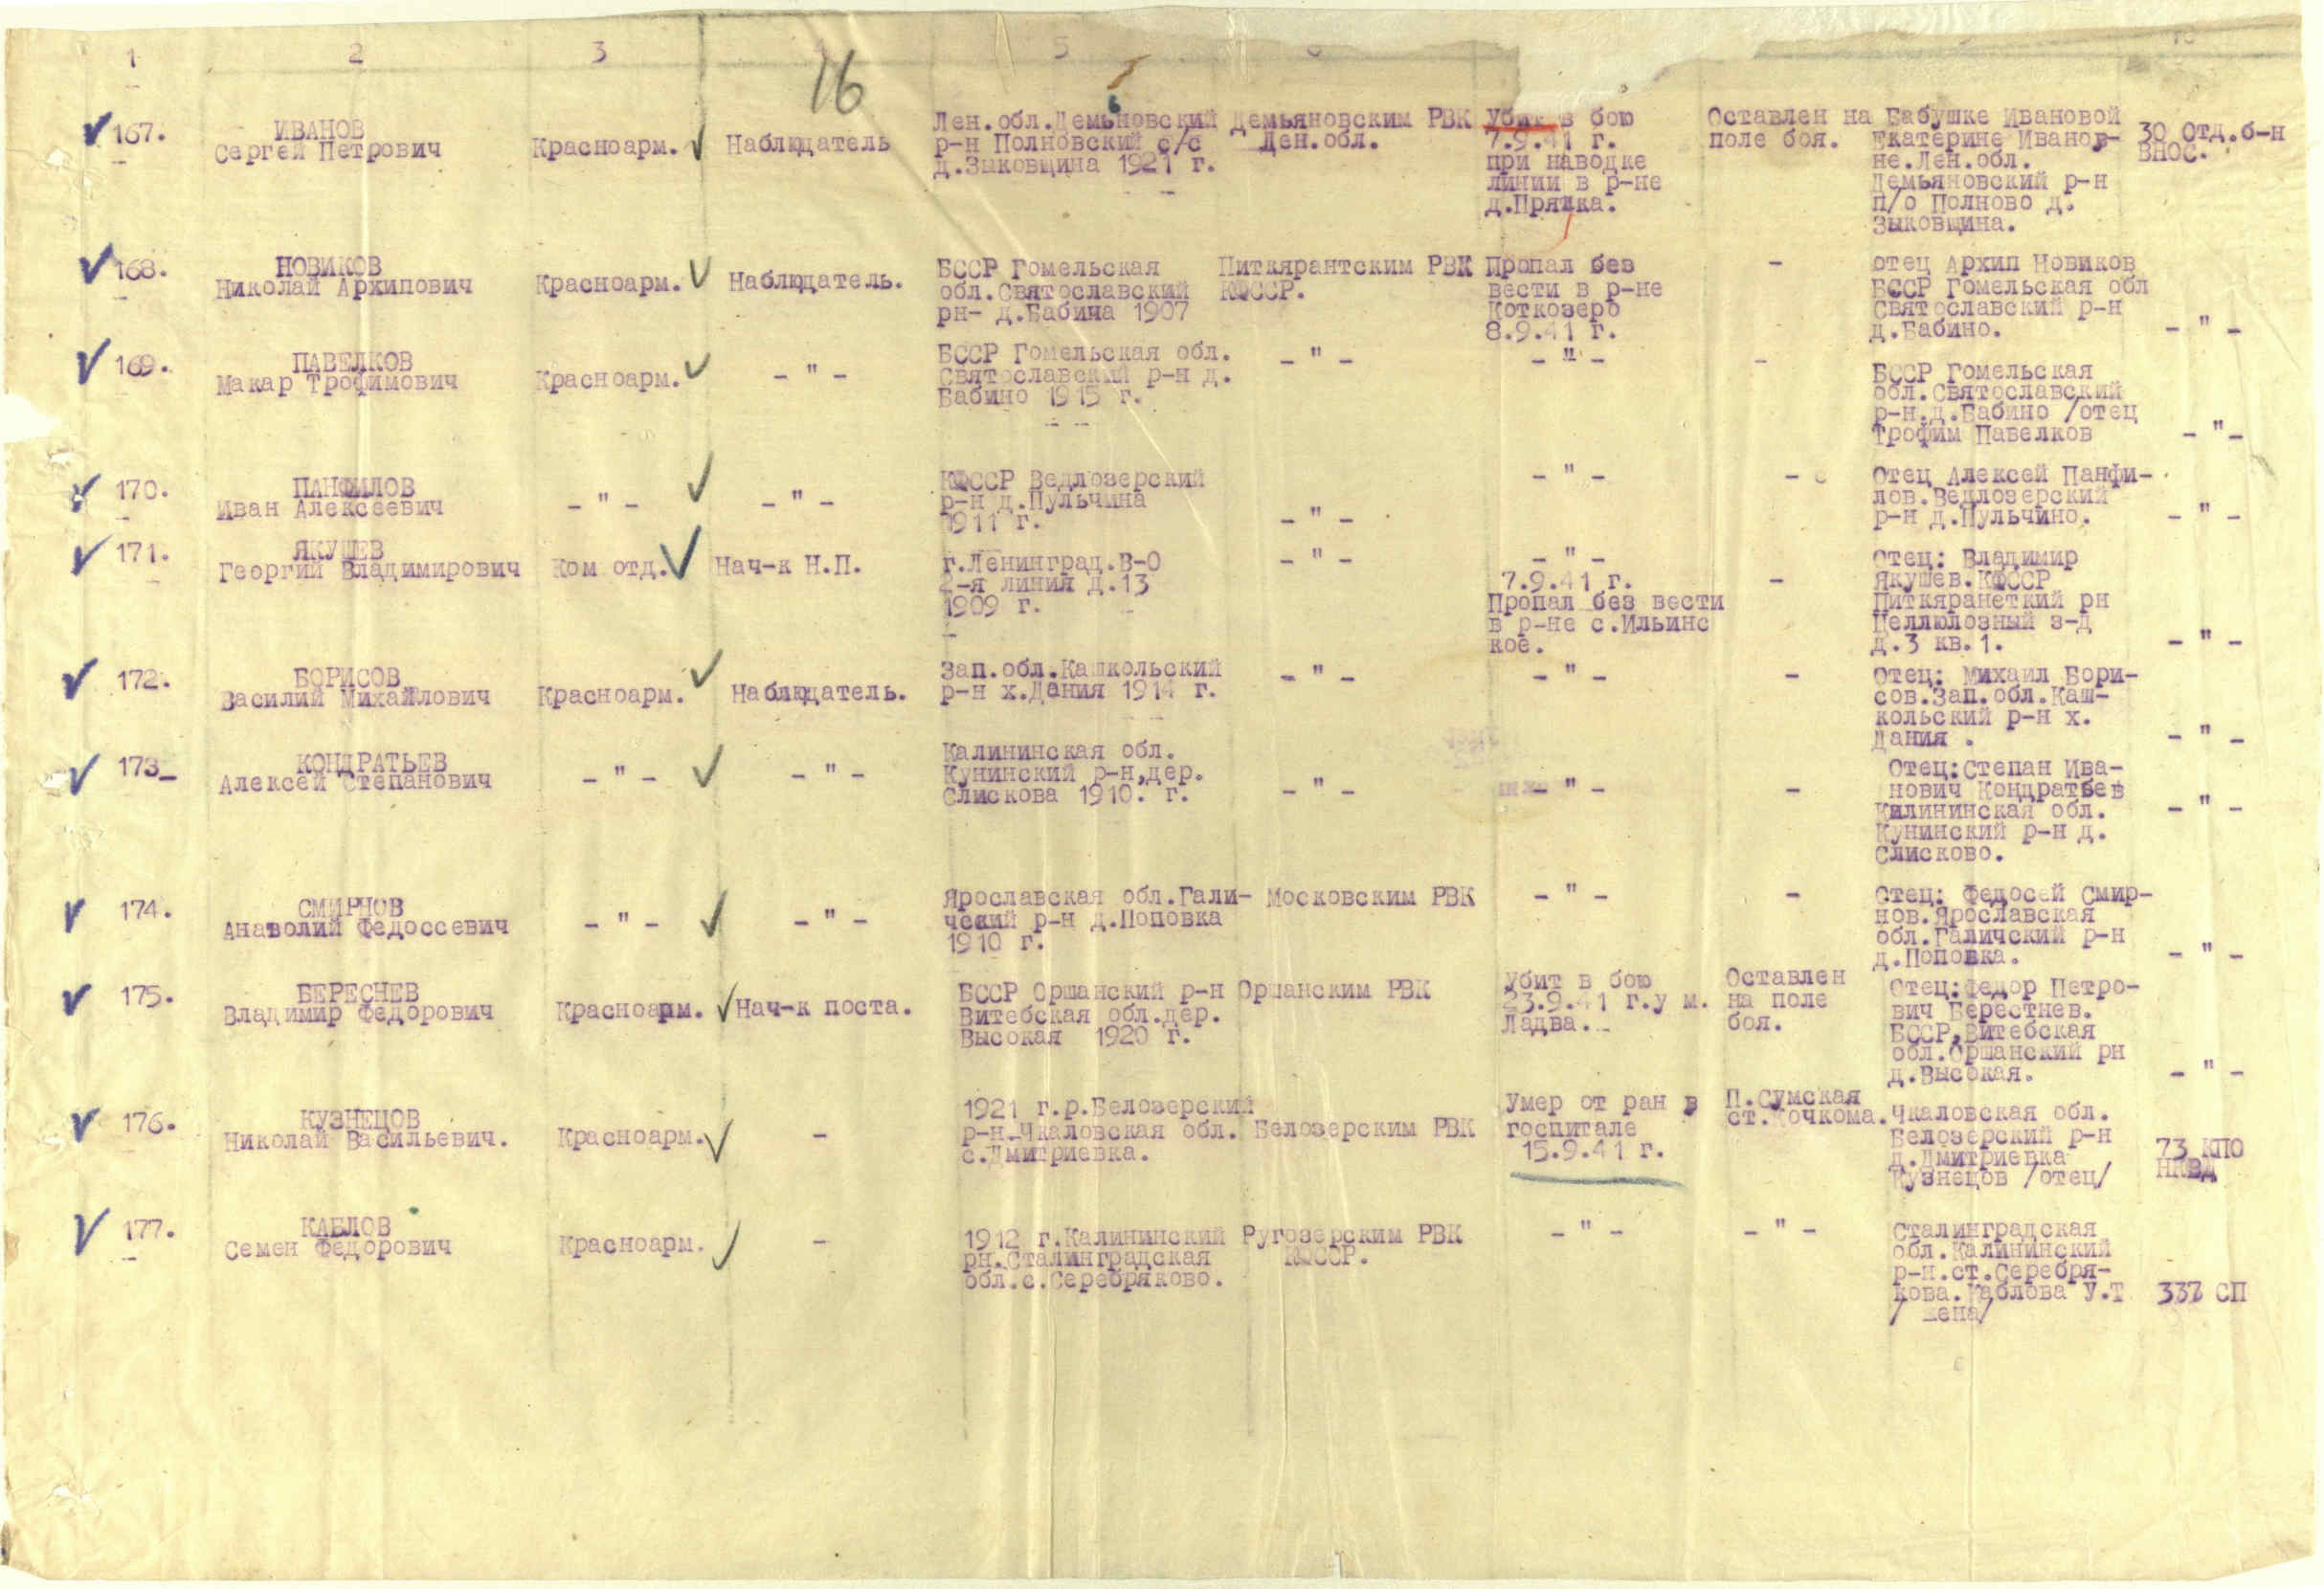 1 2 3 5
16
167.
ИВАНОВ
Сергей Петрович
Красноарм.
Наблюдатель
Лен.обл.Демьновский
р-н Полновский с/с
д.Зыковщина 1921 г.
Демьяновским РВК
Лен.обл.
Убит в бою
7.9.41 г.
при наводке
линии в р-не
д.Пряжка.
Оставлен на
поле боя.
Бабушке Ивановой
Екатерине Иванов-
не.Лен.обл.
Демьяновский р-н
п/о Полново д.
Зыковщина.
30 отд.б-н
ВНОС.
168.
НОВИКОВ
Николай Архипович
Красноарм.
Наблюдатель.
БССР Гомельская
обл.Святославский
рн- д.Бабина 1907
Питкярантским РВК
КФССР.
Пропал без
вести в р-не
Коткозеро
8.9.41 г.
-
отец Архип Новиков
БССР Гомельская обл
Святославский р-н
д.Бабино.
- " -
169.
ПАВЕЛКОВ
Макар Трофимович
Красноарм.
- " -
БССР Гомельская обл.
Святославский р-н д.
Бабино 1915 г.
- " -
- " -
-
БССР Гомельская
обл.Святославский
р-н.д.Бабино /отец
Трофим Павелков
- " -
170.
ПАНФИЛОВ
Иван Алексеевич
- " -
- " -
КФССР Ведлозерский
р-н д.Пульчина
1911 г.
- " -
- " -
-
Отец Алексей Панфи-
лов.Ведлозерский
р-н д.Пульчино.
- " -
171.
ЯКУШЕВ
Георгий Владимирович
Ком отд.
Нач-к Н.П.
г.Ленинград.В-О
2-я линия д.13
1909 г.
- " -
- " -
7.9.41 г.
Пропал без вести
в р-не с.Ильинс
кое.
-
Отец: Владимир
Якушев.КФССР
Питкяранеткий рн
Целлюлозный з-д
д.3 кв.1.
- " -
172.
БОРИСОВ
Василий Михайлович
Красноарм.
Наблюдатель.
Зап.обл.Кашкольский
р-н х.Дания 1914 г.
- " -
- " -
-
Отец: Михаил Бори-
сов.Зап.обл.Каш-
кольский р-н х.
Дания .
- " -
173_
КОНДРАТЬЕВ
Алексей Степанович
- " -
- " -
Калининская обл.
Кунинский р-н,дер.
Слискова 1910. г.
- " -
- " -
-
Отец:Степан Ива-
нович Кондратьев
Калининская обл.
Кунинский р-н д.
Слисково.
- " -
174.
СМИРНОВ
Анатолий Федоссевич
- " -
- " -
Ярославская обл.Гали-
ческий р-н д.Поповка
1910 г.
Московским РВК
- " -
-
Отец: Федосей Смир-
нов.Ярославская
обл.Галичский р-н
д.Поповка.
- " -
175.
БЕРЕСНЕВ
Владимир Федорович
Красноарм.
Нач-к поста.
БССР Оршанский р-н
Витебская обл.дер.
Высокая 1920 г.
Оршанским РВК
Убит в бою
23.9.41 г.у м.
Ладва.
Оставлен
на поле
боя.
Отец:Федор Петро-
вич Берестнев.
БССР,Витебская
обл.Оршанский рн
д.Высокая.
- " -
176.
КУЗНЕЦОВ
Николай Васильевич.
Красноарм.
-
1921 г.р.Белозерский
р-н-Чкаловская обл.
с.Дмитриевка.
Белозерским РВК
Умер от ран в
госпитале
15.9.41 г.
П.Сумская
ст.Сочкома.
Чкаловская обл.
Белозерский р-н
д.Дмитриевка
Кузнецов /отец/
73 КПО
НКВД
177.
КАБЛОВ
Семен Федорович
Красноарм.
-
1912 г.Калининский
рн.Сталинградская
обл.с.Серебряково.
Ругозерским РВК
КФССР.
- " -
- " -
Сталинградская
обл.Калининский
р-н.ст.Серебря-
кова.Каблова У.Т
/жена/
337 СП